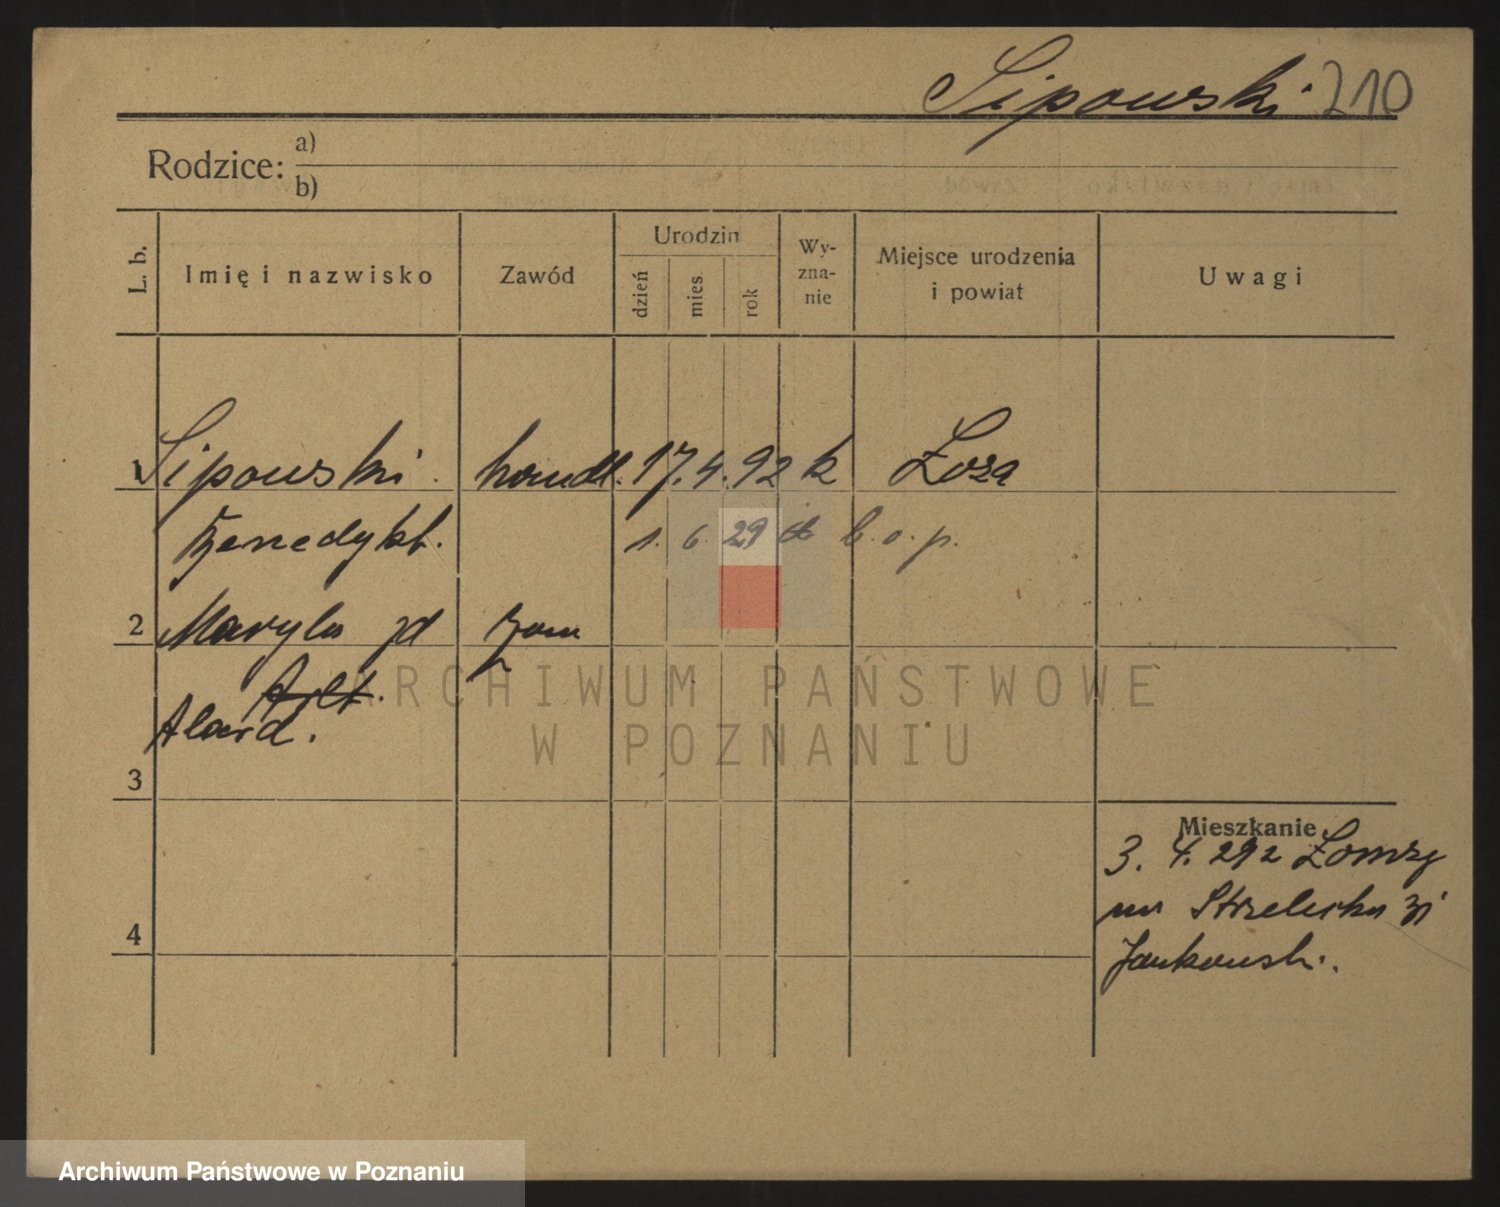 Sipowski 210
Rodzice: a)
b)
L. b. Imię i nazwisko Zawód Urodzin dzień mies. rok Wy-zna-nie Miejsce urodzenia i powiat Uwagi
1 Sipowski handl. 17. 4. 92 k Łoza
Benedykt. 1. 6. 29 b. o. p.
2 Maryla zd
Arlt.
Alard.
3
Mieszkanie
3. 4. 29 z Łomży
na Strzelecka 31
Jankowski.
4
ARCHIWUM PAŃSTWOWE
W POZNANIU
Archiwum Państwowe w Poznaniu